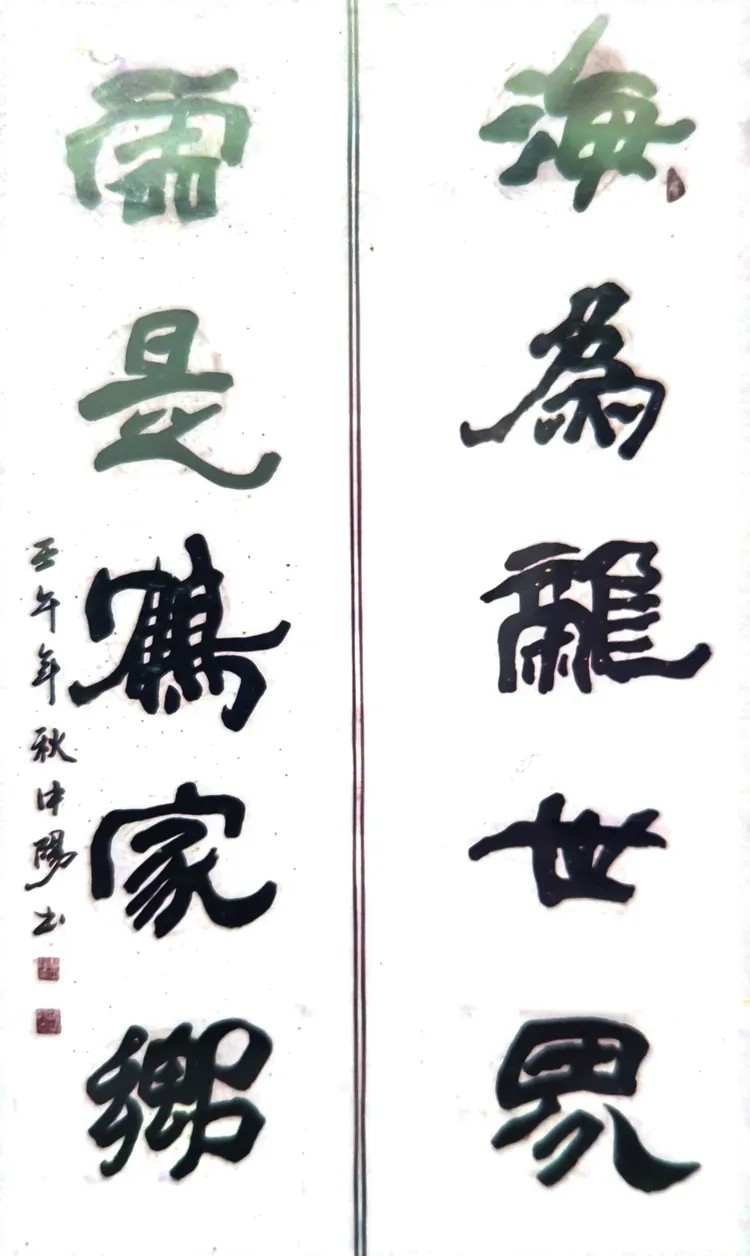 海為龍世界
雲是鶴家鄉
壬午年秋中陽书